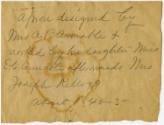 Apron designed by
Mrs A. P. Annable &
worked by her daughter Miss
Annable afterwards Mrs
Joseph Kellogg
about 1840-3-